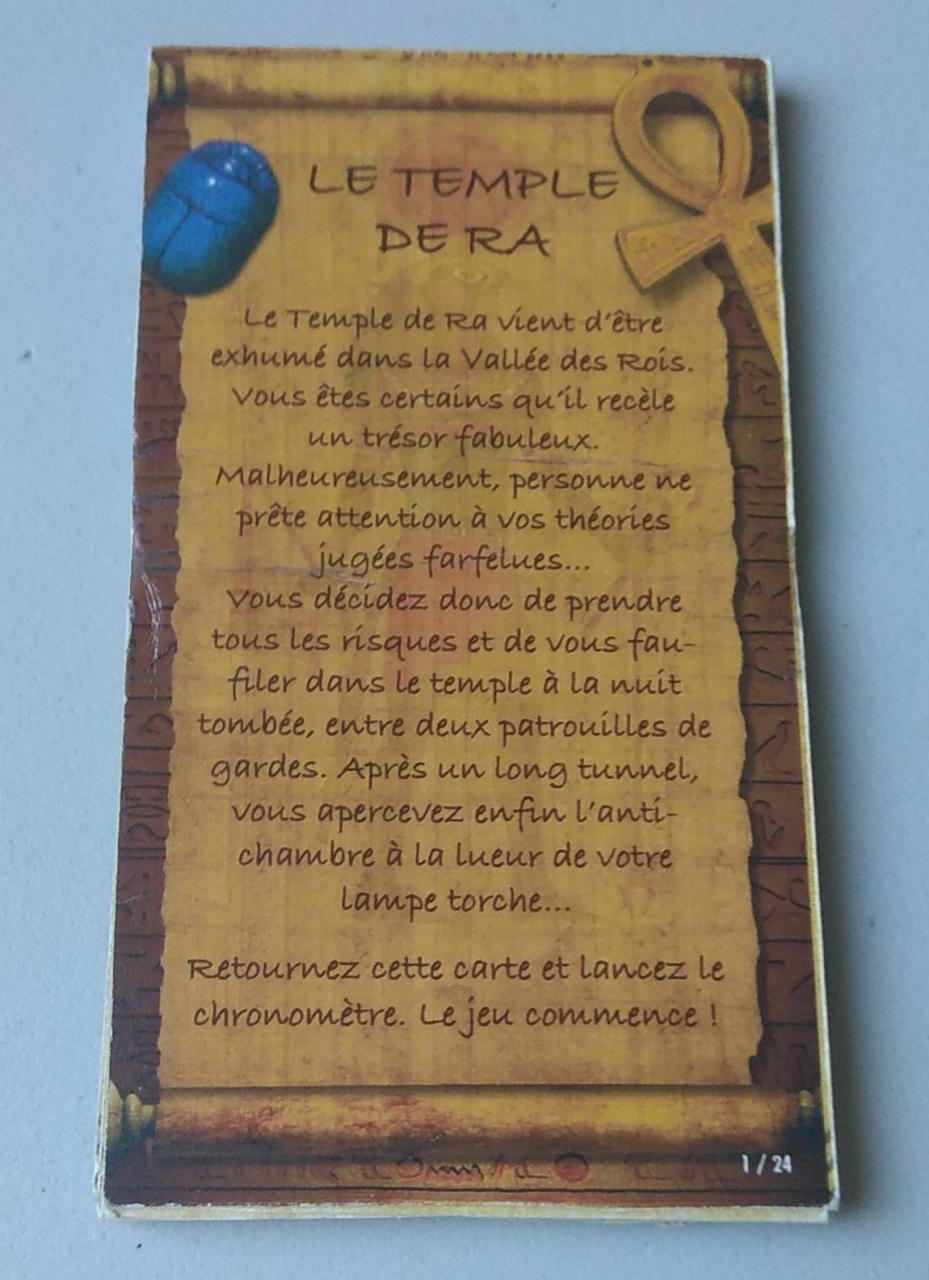 LE TEMPLE
DE RA
Le Temple de Ra vient d'être
exhumé dans la Vallée des Rois.
Vous êtes certains qu'il recèle
un trésor fabuleux.
Malheureusement, personne ne
prête attention à vos théories
jugées farfelues...
Vous décidez donc de prendre
tous les risques et de vous fau-
filer dans le temple à la nuit
tombée, entre deux patrouilles de
gardes. Après un long tunnel,
vous apercevez enfin l'anti-
chambre à la lueur de votre
lampe torche...
Retournez cette carte et lancez le
chronomètre. Le jeu commence !
1 / 24